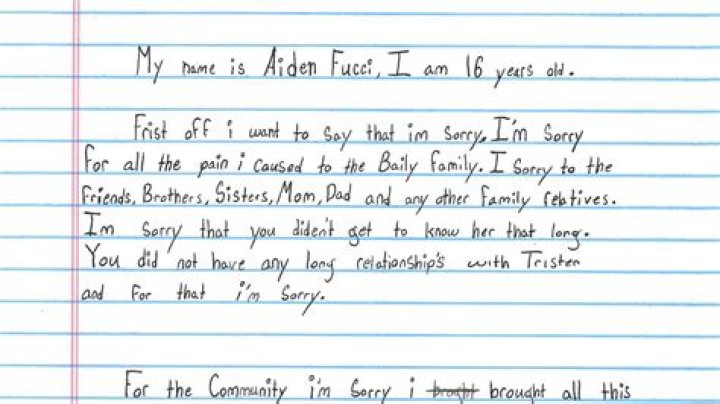 My name is Aiden Fucci, I am 16 years old.
Frist off i want to say that im sorry. I'm sorry
for all the pain i caused to the Baily family. I sorry to the
friends, Brothers, Sisters, Mom, Dad and any other family relatives.
I'm sorry that you dident get to know her that long.
You did not have any long relationship's with Tristen
and for that i'm sorry.
For the Community i'm sorry i broght brought all this